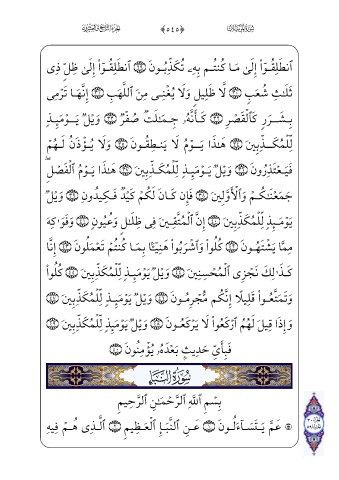 ٱنطَلِقُوٓا۟ إِلَىٰ مَا كُنتُم بِهِۦ تُكَذِّبُونَ ٱنطَلِقُوٓا۟ إِلَىٰ ظِلٍّ ذِى
ثَلَـٰثِ شُعَبٍ لَّا ظَلِيلٍ وَلَا يُغْنِى مِنَ ٱللَّهَبِ إِنَّهَا تَرْمِى
بِشَرَرٍ كَٱلْقَصْرِ كَأَنَّهُۥ جِمَـٰلَتٌ صُفْرٌ وَيْلٌ يَوْمَئِذٍ
لِّلْمُكَذِّبِينَ هَـٰذَا يَوْمُ لَا يَنطِقُونَ وَلَا يُؤْذَنُ لَهُمْ
فَيَعْتَذِرُونَ وَيْلٌ يَوْمَئِذٍ لِّلْمُكَذِّبِينَ هَـٰذَا يَوْمُ ٱلْفَصْلِ
جَمَعْنَـٰكُمْ وَٱلْأَوَّلِينَ فَإِن كَانَ لَكُمْ كَيْدٌ فَكِيدُونِ وَيْلٌ
يَوْمَئِذٍ لِّلْمُكَذِّبِينَ إِنَّ ٱلْمُتَّقِينَ فِى ظِلَـٰلٍ وَعُيُونٍ وَفَوَٰكِهَ
مِمَّا يَشْتَهُونَ كُلُوا۟ وَٱشْرَبُوا۟ هَنِيٓـًٔۢا بِمَا كُنتُمْ تَعْمَلُونَ إِنَّا
كَذَٰلِكَ نَجْزِى ٱلْمُحْسِنِينَ وَيْلٌ يَوْمَئِذٍ لِّلْمُكَذِّبِينَ كُلُوا۟
وَتَمَتَّعُوا۟ قَلِيلًا إِنَّكُم مُّجْرِمُونَ وَيْلٌ يَوْمَئِذٍ لِّلْمُكَذِّبِينَ
وَإِذَا قِيلَ لَهُمُ ٱرْكَعُوا۟ لَا يَرْكَعُونَ وَيْلٌ يَوْمَئِذٍ لِّلْمُكَذِّبِينَ
فَبِأَىِّ حَدِيثٍۭ بَعْدَهُۥ يُؤْمِنُونَ
سُورَةُ النَّبَإِ
بِسْمِ ٱللَّهِ ٱلرَّحْمَـٰنِ ٱلرَّحِيمِ
عَمَّ يَتَسَآءَلُونَ عَنِ ٱلنَّبَإِ ٱلْعَظِيمِ ٱلَّذِى هُمْ فِيهِ